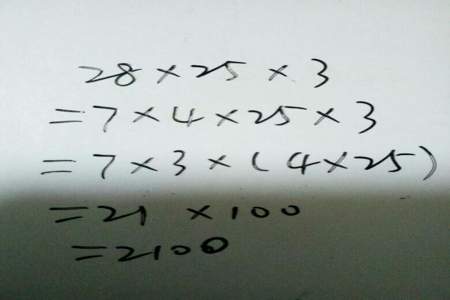 28×25×3
=7×4×25×3
=7×3×(4×25)
=21×100
=2100